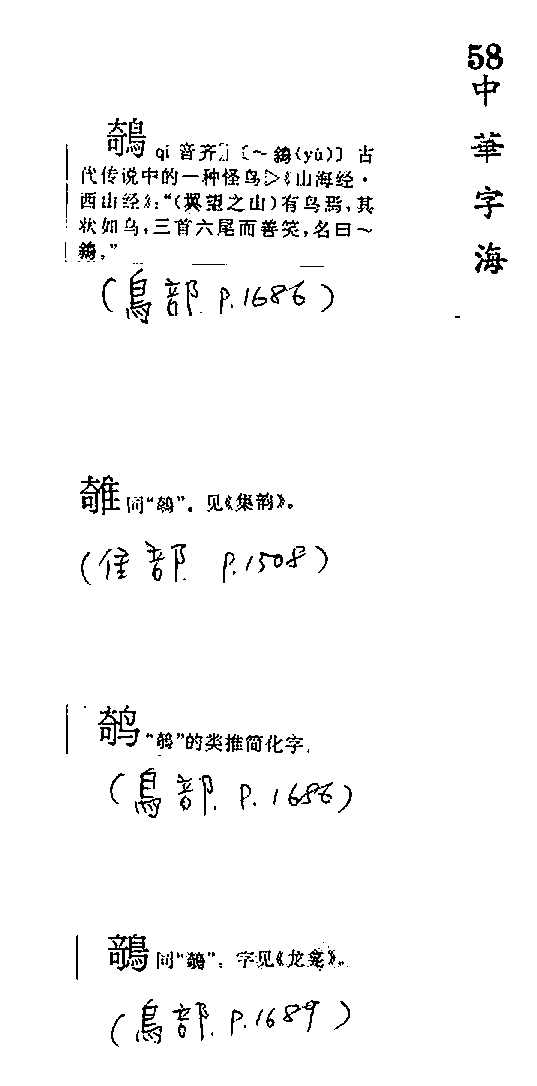 58
中華字海
鵸 qí 音齐〔~鵌(yú)〕古
代传说中的一种怪鸟▷《山海经·
西山经》:“(翼望之山)有鸟焉,其
状如乌,三首六尾而善笑,名曰~
鵌。”
(鳥部 P.1686)
同“鵸”。见《集韵》。
(隹部 P.1508)
“鵸”的类推简化字。
(鳥部 P.1686)
同“鵸”。字见《龙龛》。
(鳥部 P.1689)